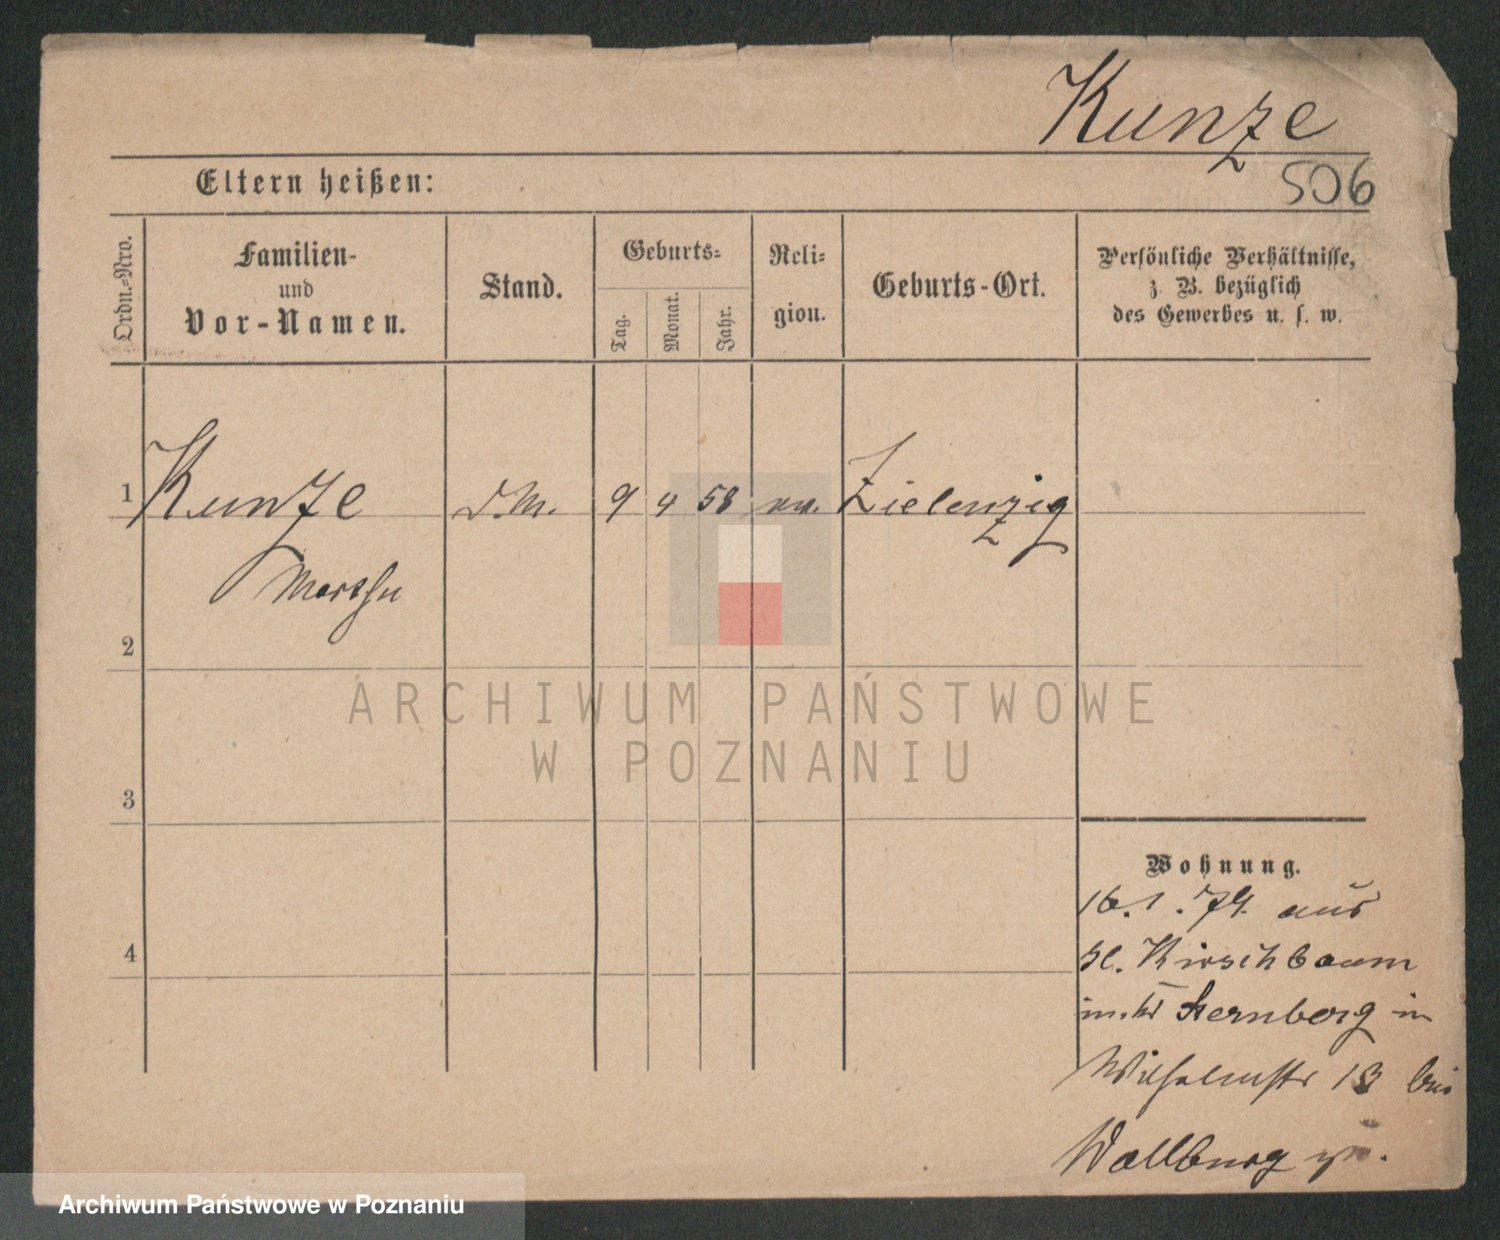 Kunze
506
Eltern heißen:
Ordn.-Nro.
Familien-
und
Vor-Namen.
Stand.
Geburts-
Tag.
Monat.
Jahr.
Reli-
gion.
Geburts-Ort.
Persönliche Verhältnisse,
z. B. bezüglich
des Gewerbes u. s. w.
1 Kunze D.M. 9 4 58 ev. Zielenzig
Martha
2
3
4
Wohnung.
16.1.74. aus
Kl. Kirschbaum
Sternberg in
Wilhelmstr 13 bei
Wallburg
ARCHIWUM PAŃSTWOWE
W POZNANIU
Archiwum Państwowe w Poznaniu